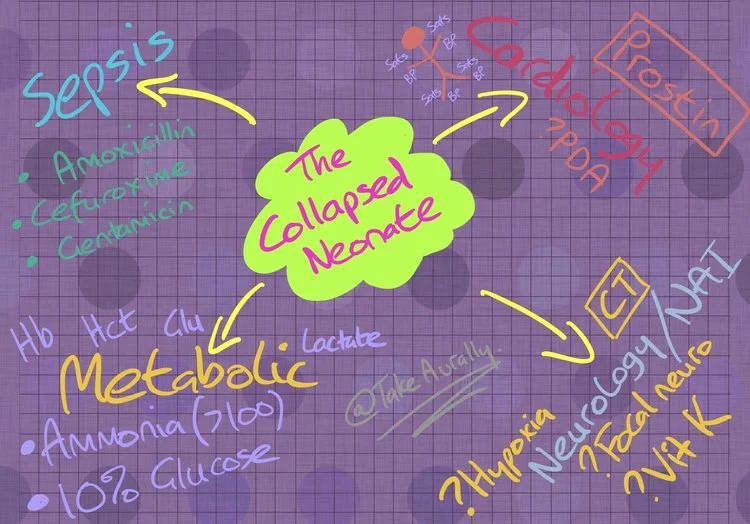 The
Collapsed
Neonate
Sepsis
• Amoxicillin
• Cefuroxime
• Gentamicin
Sats
BP
Sats
BP
Sats
BP
Sats
BP
Cardiology
?PDA
Prostin
Hb Hct Glu
Lactate
Metabolic
• Ammonia (>100)
• 10% Glucose
@TakeAurally.
CT
Neurology/NAI
?Hypoxia
?Focal neuro
?Vit K